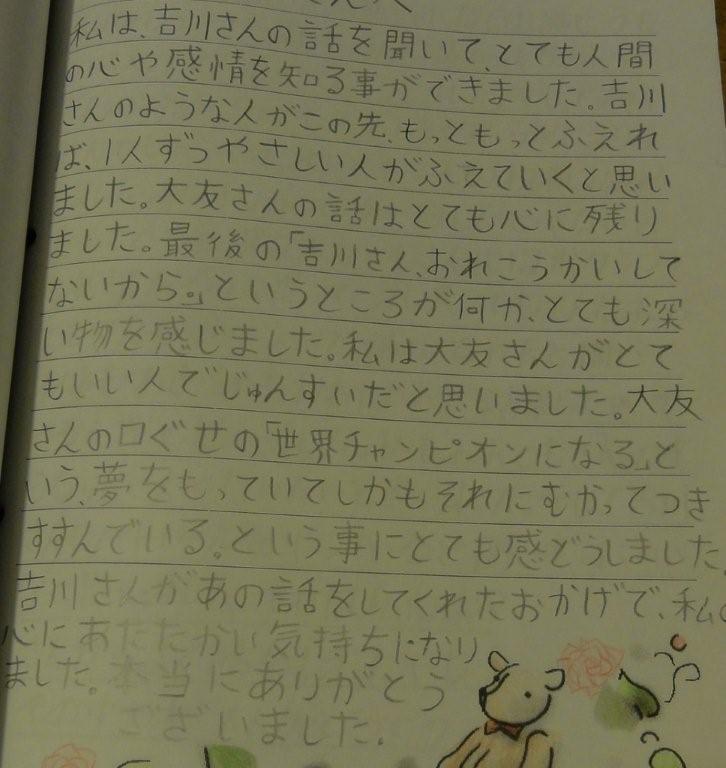 私は、吉川さんの話を聞いて、とても人間
の心や感情を知る事ができました。吉川
さんのような人がこの先、もっともっとふえれ
ば、1人ずつやさしい人がふえていくと思い
ました。大友さんの話はとても心に残り
ました。最後の「吉川さん、おれこうかいして
ないから。」というところが何か、とても深
い物を感じました。私は大友さんがとて
もいい人でじゅんすいだと思いました。大友
さんの口ぐせの「世界チャンピオンになる」と
いう、夢をもっていてしかもそれにむかってつき
すすんでいる。という事にとても感どうしました。
吉川さんがあの話をしてくれたおかげで、私の
心にあたたかい気持ちになり
ました。本当にありがとう
ございました。